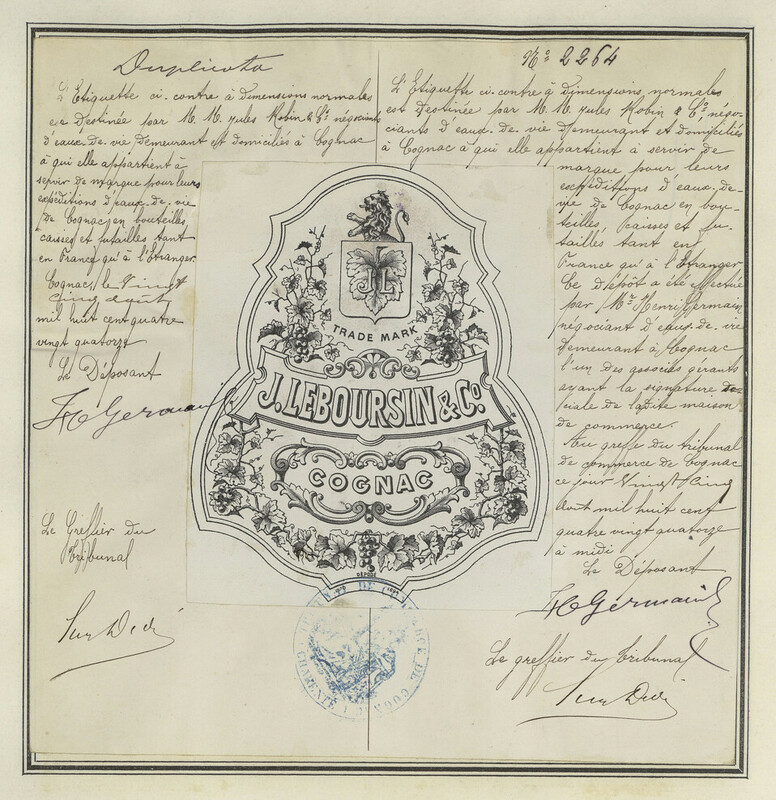 Duplicata
L'Etiquette ci-contre à dimensions normales
est destinée par M.M. Jules Robin & Cie négociants
d'eaux-de-vie demeurant et domiciliés à Cognac
à qui elle appartient à
servir de marque pour leurs
expéditions d'eaux-de-vie
de Cognac en bouteilles,
caisses et futailles tant
en France qu'à l'Etranger
Cognac, le Vingt
Cinq août
mil huit cent quatre
vingt quatorze
Le Déposant
H Germain
Le Greffier du
Tribunal
No 2264
L'Etiquette ci-contre à dimensions normales
est destinée par M.M. Jules Robin & Cie négo-
ciants d'eaux-de-vie demeurant et domiciliés
à Cognac à qui elle appartient à servir de
marque pour leurs
expéditions d'eaux-de-
vie de Cognac en bou-
teilles, caisses et fu-
tailles tant en
France qu'à l'Etranger
Ce dépôt a été effectué
par Mr Henri Germain
négociant d'eaux-de-vie
demeurant à Cognac
l'un des associés gérants
ayant la signature so-
ciale de ladite maison
de commerce.
Au greffe du tribunal
de commerce de Cognac
ce jour Vingt Cinq
août mil huit cent
quatre vingt quatorze
à midi
Le Déposant
H Germain
Le greffier du tribunal
JL
TRADE MARK
J. LEBOURSIN & Co.
COGNAC
DÉPOSÉ
TRIBUNAL DE COMMERCE DE COGNAC
CHARENTE